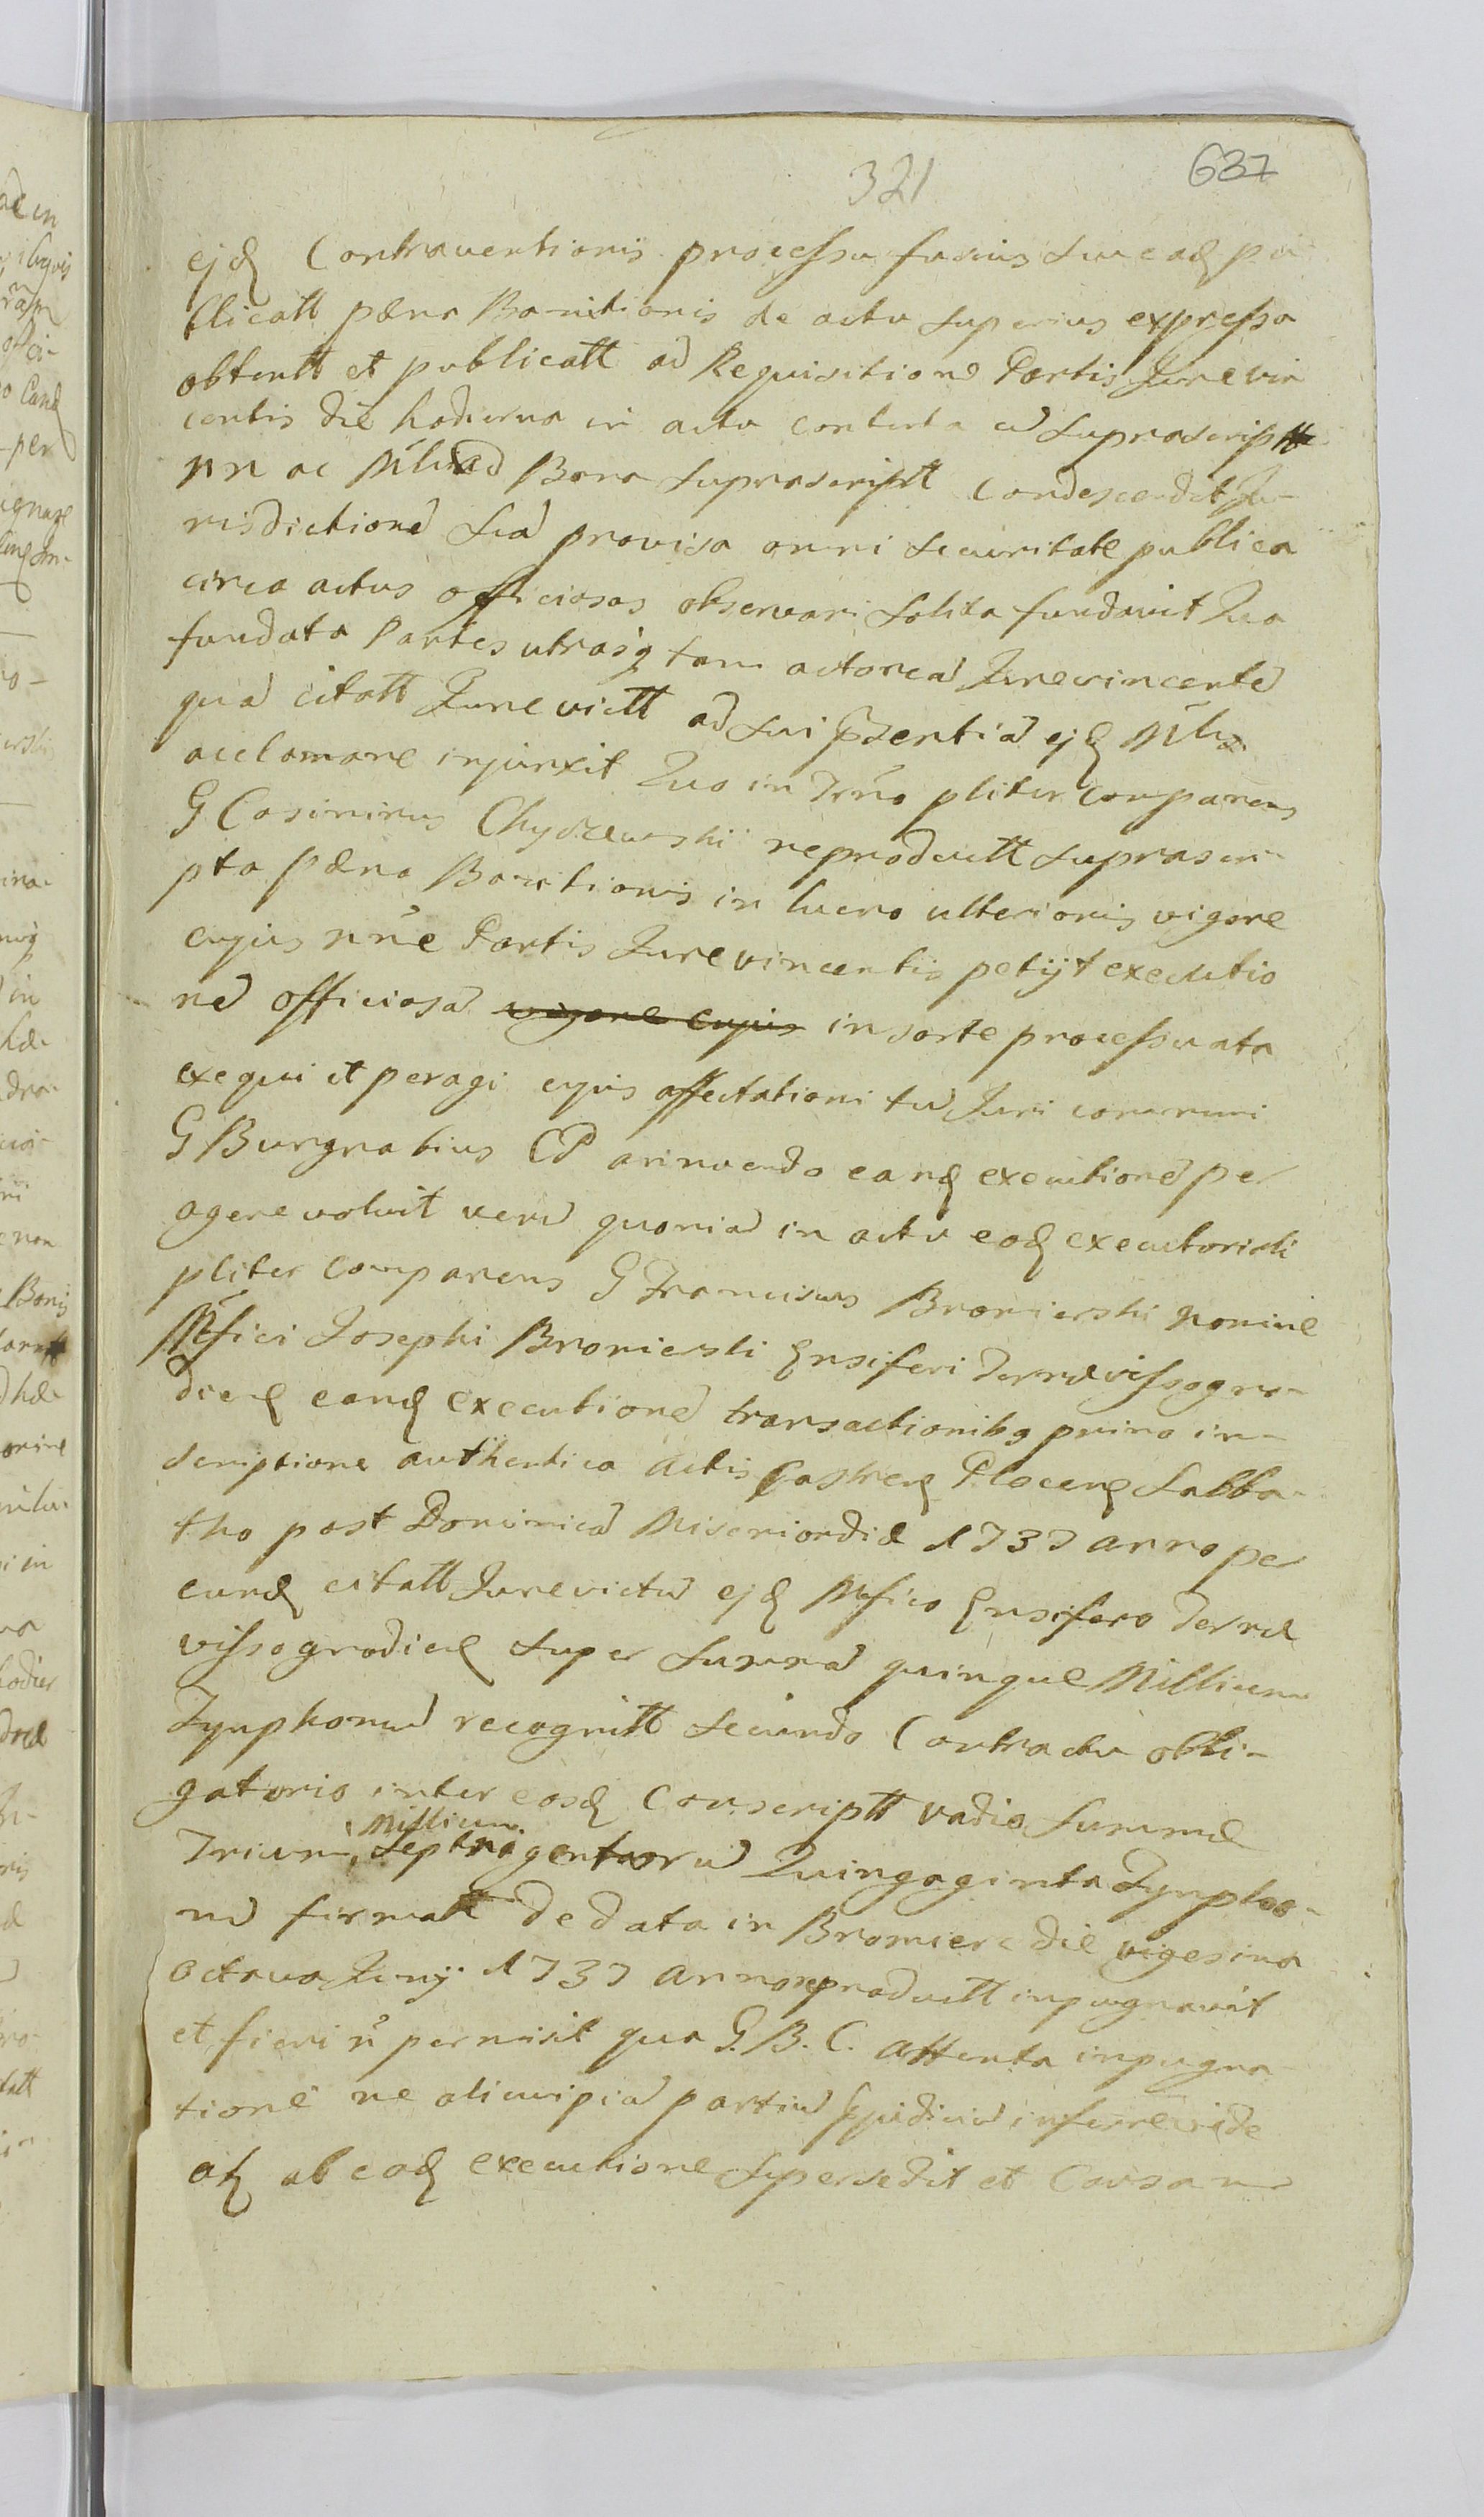 321
637
ejd Contraventionis processu fusius sive ead pu
blicatt pæna Banitionis de actu superius expressa
obtentt et publicatt ad Requisitione Partis Jurevin
centis die hodierna in actu contenta cu suprascriptt
nn ac Mltri ad Bona suprascriptt condescendit Ju-
risdictione sua provisa omni securitate publica
circa actus officiosos observari solita fundavit Qua
fundata Partes utrasq tam actorea Jurevincente
qua citatt Jurevictt ad sui pnsentia ejd Mltri
acclamare injunxit Quo in Trno pliter comparens
G Casimirus Chyczewski reproductt suprascri-
pta pæna Banitionis in lucro ulterioris vigore
cujus nne Partis Jurevincentis petijt executio
ne officiosa vigore cujus in sorte processuata
exequi et peragi cujus affectationi tu Juri communi
G Burgrabius CP annuendo eand executione per
agere voluit veru quonia in actu eod executoriali
pliter comparens G Franciscus Broniewski nomine
Mfici Josephi Broniewski Ensiferi Terræ vissogro-
diens eand executione transactionibg primo in-
scriptione authentica actis Castrens Plocens Sabba-
tho post Dominica Misericordiæ 1737 anno per
eund citatt Jurevictu ejd Mfico Ensifero Terræ
vissogrodiens super summa quinque Millium
Tymphonu recognitt secundo Contractu obli-
gatorio inter eosd conscriptt vadio summæ
Trium Millium Septingentoru Quinqaginta Tympho-
nu firmatt De data in Bromierz die vigesima
octava Junij 1737 anno reproductt impugnavit
et fieri n permisit qua G. B. C. attenta impugna-
tione ne alicuipia partiu pjudiciu inferre vide
at ab ead executione supersedit et Causam